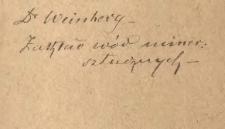 Dr Weinberg –
Zakład wód miner:
sztucznych –